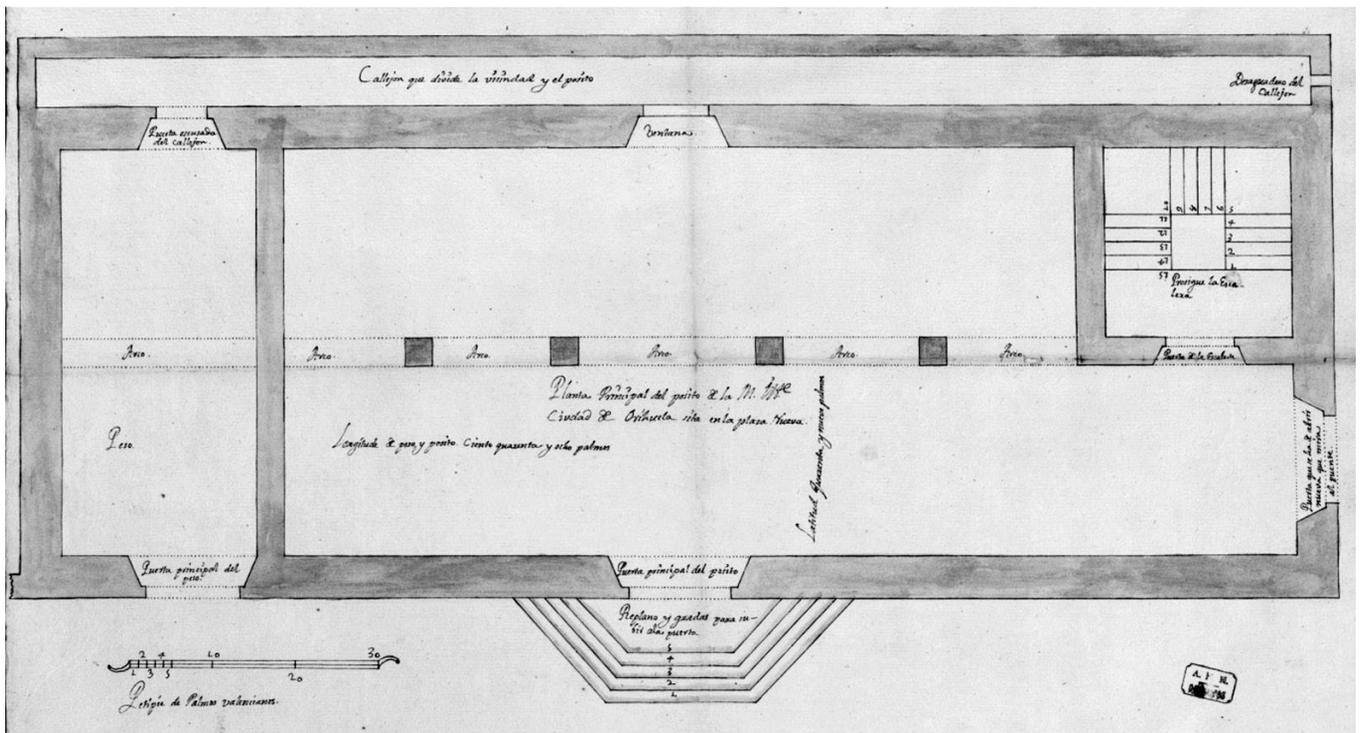 Callejon que divide la vicindad y el posito
Desaguadero del
Callejon
Puerta escusada
del Callejon.
Ventana.
10
9
8
7
6
5
11
4
12
3
13
2
14
1
15
Prosigue la Esca-
lera
Arco.
Arco.
Arco.
Arco.
Arco.
Arco.
Puerta de la Escalera
Planta Principal del posito de la M. Ille
Ciudad de Orihuela sita en la plaza Nueva.
Longitude de peso y posito. Ciento quarenta y ocho palmos
Latitud Quarenta y nueve palmos
Peso.
Puerta que se ha de abrir
nueva que mira
al puente.
Puerta principal del
peso.
Puerta principal del posito
Replano y gradas para su-
bir a la puerta.
5
4
3
2
1
1 2 3 4 5 10 20 30
Petipie de Palmos valencianos.
A. H. N.